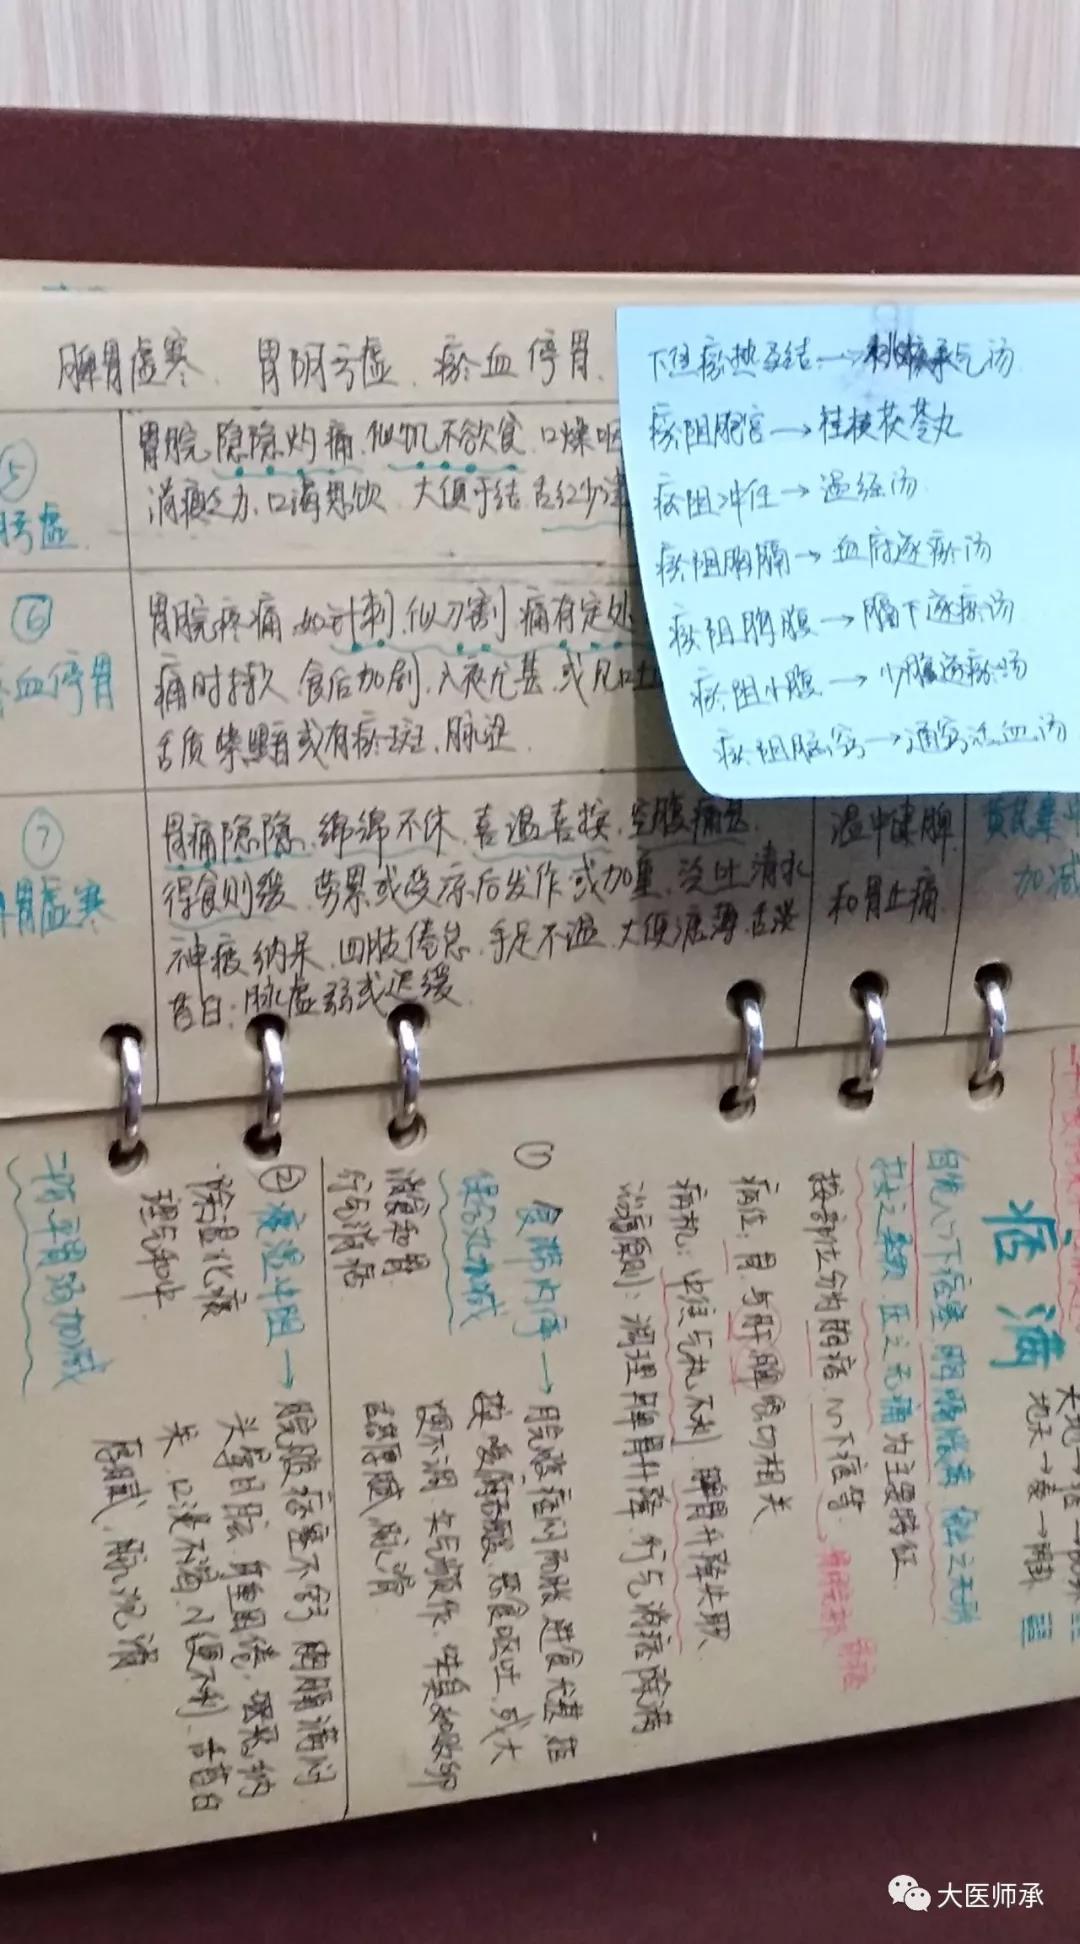 脾胃虚寒、胃阴亏虚、瘀血停胃、
⑤
亏虚
胃脘隐隐灼痛、似饥不欲食、口燥咽
消瘦乏力、口渴思饮、大便干结、舌红少津
⑥
血停胃
胃脘疼痛、如针刺、似刀割、痛有定处、
痛时持久、食后加剧、入夜尤甚、或见吐
舌质紫黯或有瘀斑、脉涩
⑦
胃虚寒
胃痛隐隐、绵绵不休、喜温喜按、空腹痛甚、
得食则缓、劳累或受凉后发作或加重、泛吐清水
神疲纳呆、四肢倦怠、手足不温、大便溏薄、舌淡
苔白;脉虚弱或迟缓
温中健脾
和胃止痛
黄芪建中
加减
下焦瘀热互结→承气汤
瘀阻胞宫→桂枝茯苓丸
瘀阻冲任→温经汤
瘀阻胸膈→血府逐瘀汤
瘀阻胸腹→膈下逐瘀汤
瘀阻小腹→少腹逐瘀汤
瘀阻脑窍→通窍活血汤
痞满
自觉心下痞塞、胸膈胀满、触之无形
按之柔软、压之无痛为主要特征.
按部位分为胸痞、心下痞等
病位:胃、与肝脾密切相关
病机:中焦气机不利、脾胃升降失职
治疗原则:调理脾胃升降、行气消痞除满
① 食滞内停→脘腹痞闷而胀、进食尤甚、拒
按、嗳腐吞酸、恶食呕吐、或大
便不调、矢气频作、味臭如败卵
舌苔厚腻、脉滑
保和丸加减
消食和胃
行气消痞
② 痰湿中阻→脘腹痞塞不舒、胸膈满闷
头晕目眩、身重困倦、呕恶纳
呆、口淡不渴、小便不利、舌苔白
厚腻、脉沉滑
除湿化痰
理气和中
二陈平胃汤加减
大医师承